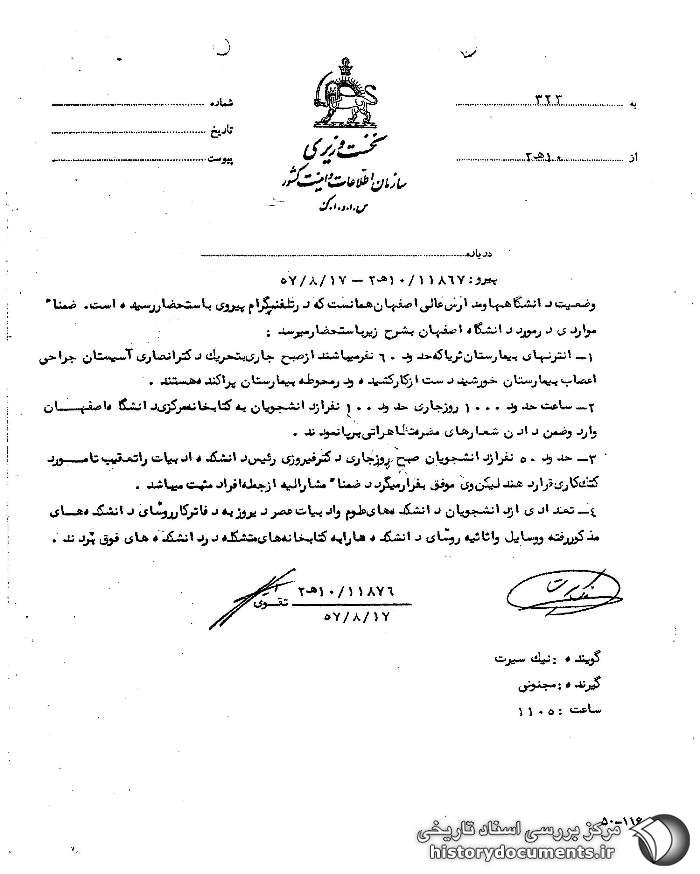 به ۳۲۳
شماره
تاریخ
از ۱۰هـ۲
پیوست
نخست وزیری
سازمان اطلاعات و امنیت کشور
س.ا.و.ا.ک
درباره
پیرو: ۱۱۸۶۷/۱۰هـ۲ – ۵۷/۸/۱۷
وضعیت دانشگاهها و مدارس عالی اصفهان همانست که در تلفنگرام پیروی باستحضار رسیده است. ضمناً
مواردی در مورد دانشگاه اصفهان بشرح زیر باستحضار میرسد :
۱– انترنهای بیمارستان ثریا که حدود ۶۰ نفر میباشند از صبح جاری بتحریک دکتر انصاری آسیستان جراحی
اعصاب بیمارستان خورشید دست از کار کشیده و در محوطه بیمارستان پراکنده هستند .
۲– ساعت حدود ۱۰۰۰ روز جاری حدود ۱۰۰ نفر از دانشجویان به کتابخانه مرکزی دانشگاه اصفهان
وارد و ضمن دادن شعارهای مضره تظاهراتی برپا نمودند .
۳– حدود ۵۰ نفر از دانشجویان صبح روز جاری دکتر فیروزی رئیس دانشکده ادبیات را تعقیب تا مورد
کتک کاری قرار دهند لیکن وی موفق بفرار میگردد ضمناً مشارالیه از جمله افراد مثبت میباشد .
۴– تعدادی از دانشجویان دانشکده های علوم و ادبیات عصر دیروز به دفاتر کار روسای دانشکده های
مذکور رفته و وسایل و اثاثیه روسای دانشکده ها را به کتابخانه های متشکله در دانشکده های فوق بردند .
۱۱۸۷۶/۱۰هـ۲
تقوی
۵۷/۸/۱۷
گوینده : نیک سیرت
گیرنده : مجنونی
ساعت : ۱۱۰۵
۵۰–۱۱۶
مرکز بررسی اسناد تاریخی
historydocuments.ir